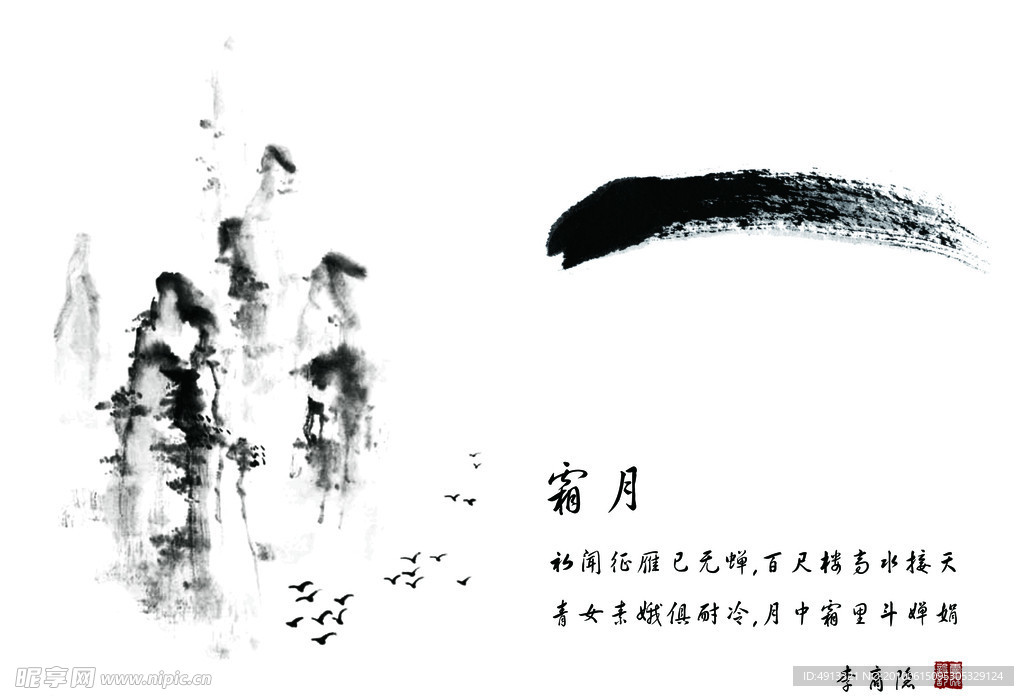 霜月
初闻征雁已无蝉,百尺楼高水接天
青女素娥俱耐冷,月中霜里斗婵娟
李商隐
昵享网 www.nipic.cn